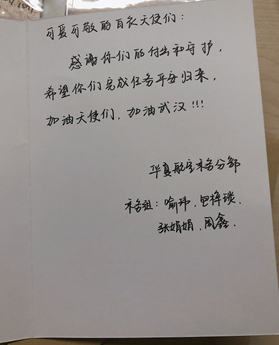 可爱可敬的白衣天使们:
感谢你们的付出和守护,
希望你们完成任务平安归来,
加油天使们,加油武汉!!!
华夏航空 分部
组:喻玮、 
张娟娟、周鑫